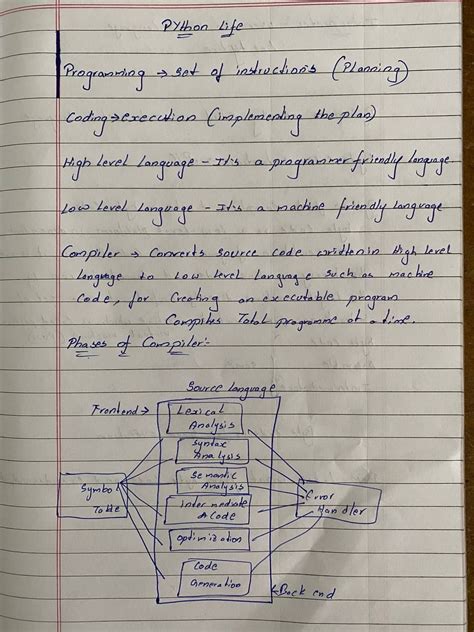 Python Life
Programming → set of instructions (Planning)
Coding → execution (implementing the plan)
High level language - It's a programmer friendly language.
Low level language - It's a machine friendly language
Compiler → Converts source code written in High level
language to Low level language such as machine
code, for Creating an executable program
Compiles Total programme at a time.
Phases of Compiler:-
Source language
Frontend → Lexical
Analysis
Syntax
Analysis
Semantic
Analysis
Symbol
Table
Error
Handler
Intermediate
Code
Optimization
Code
Generation
Back end